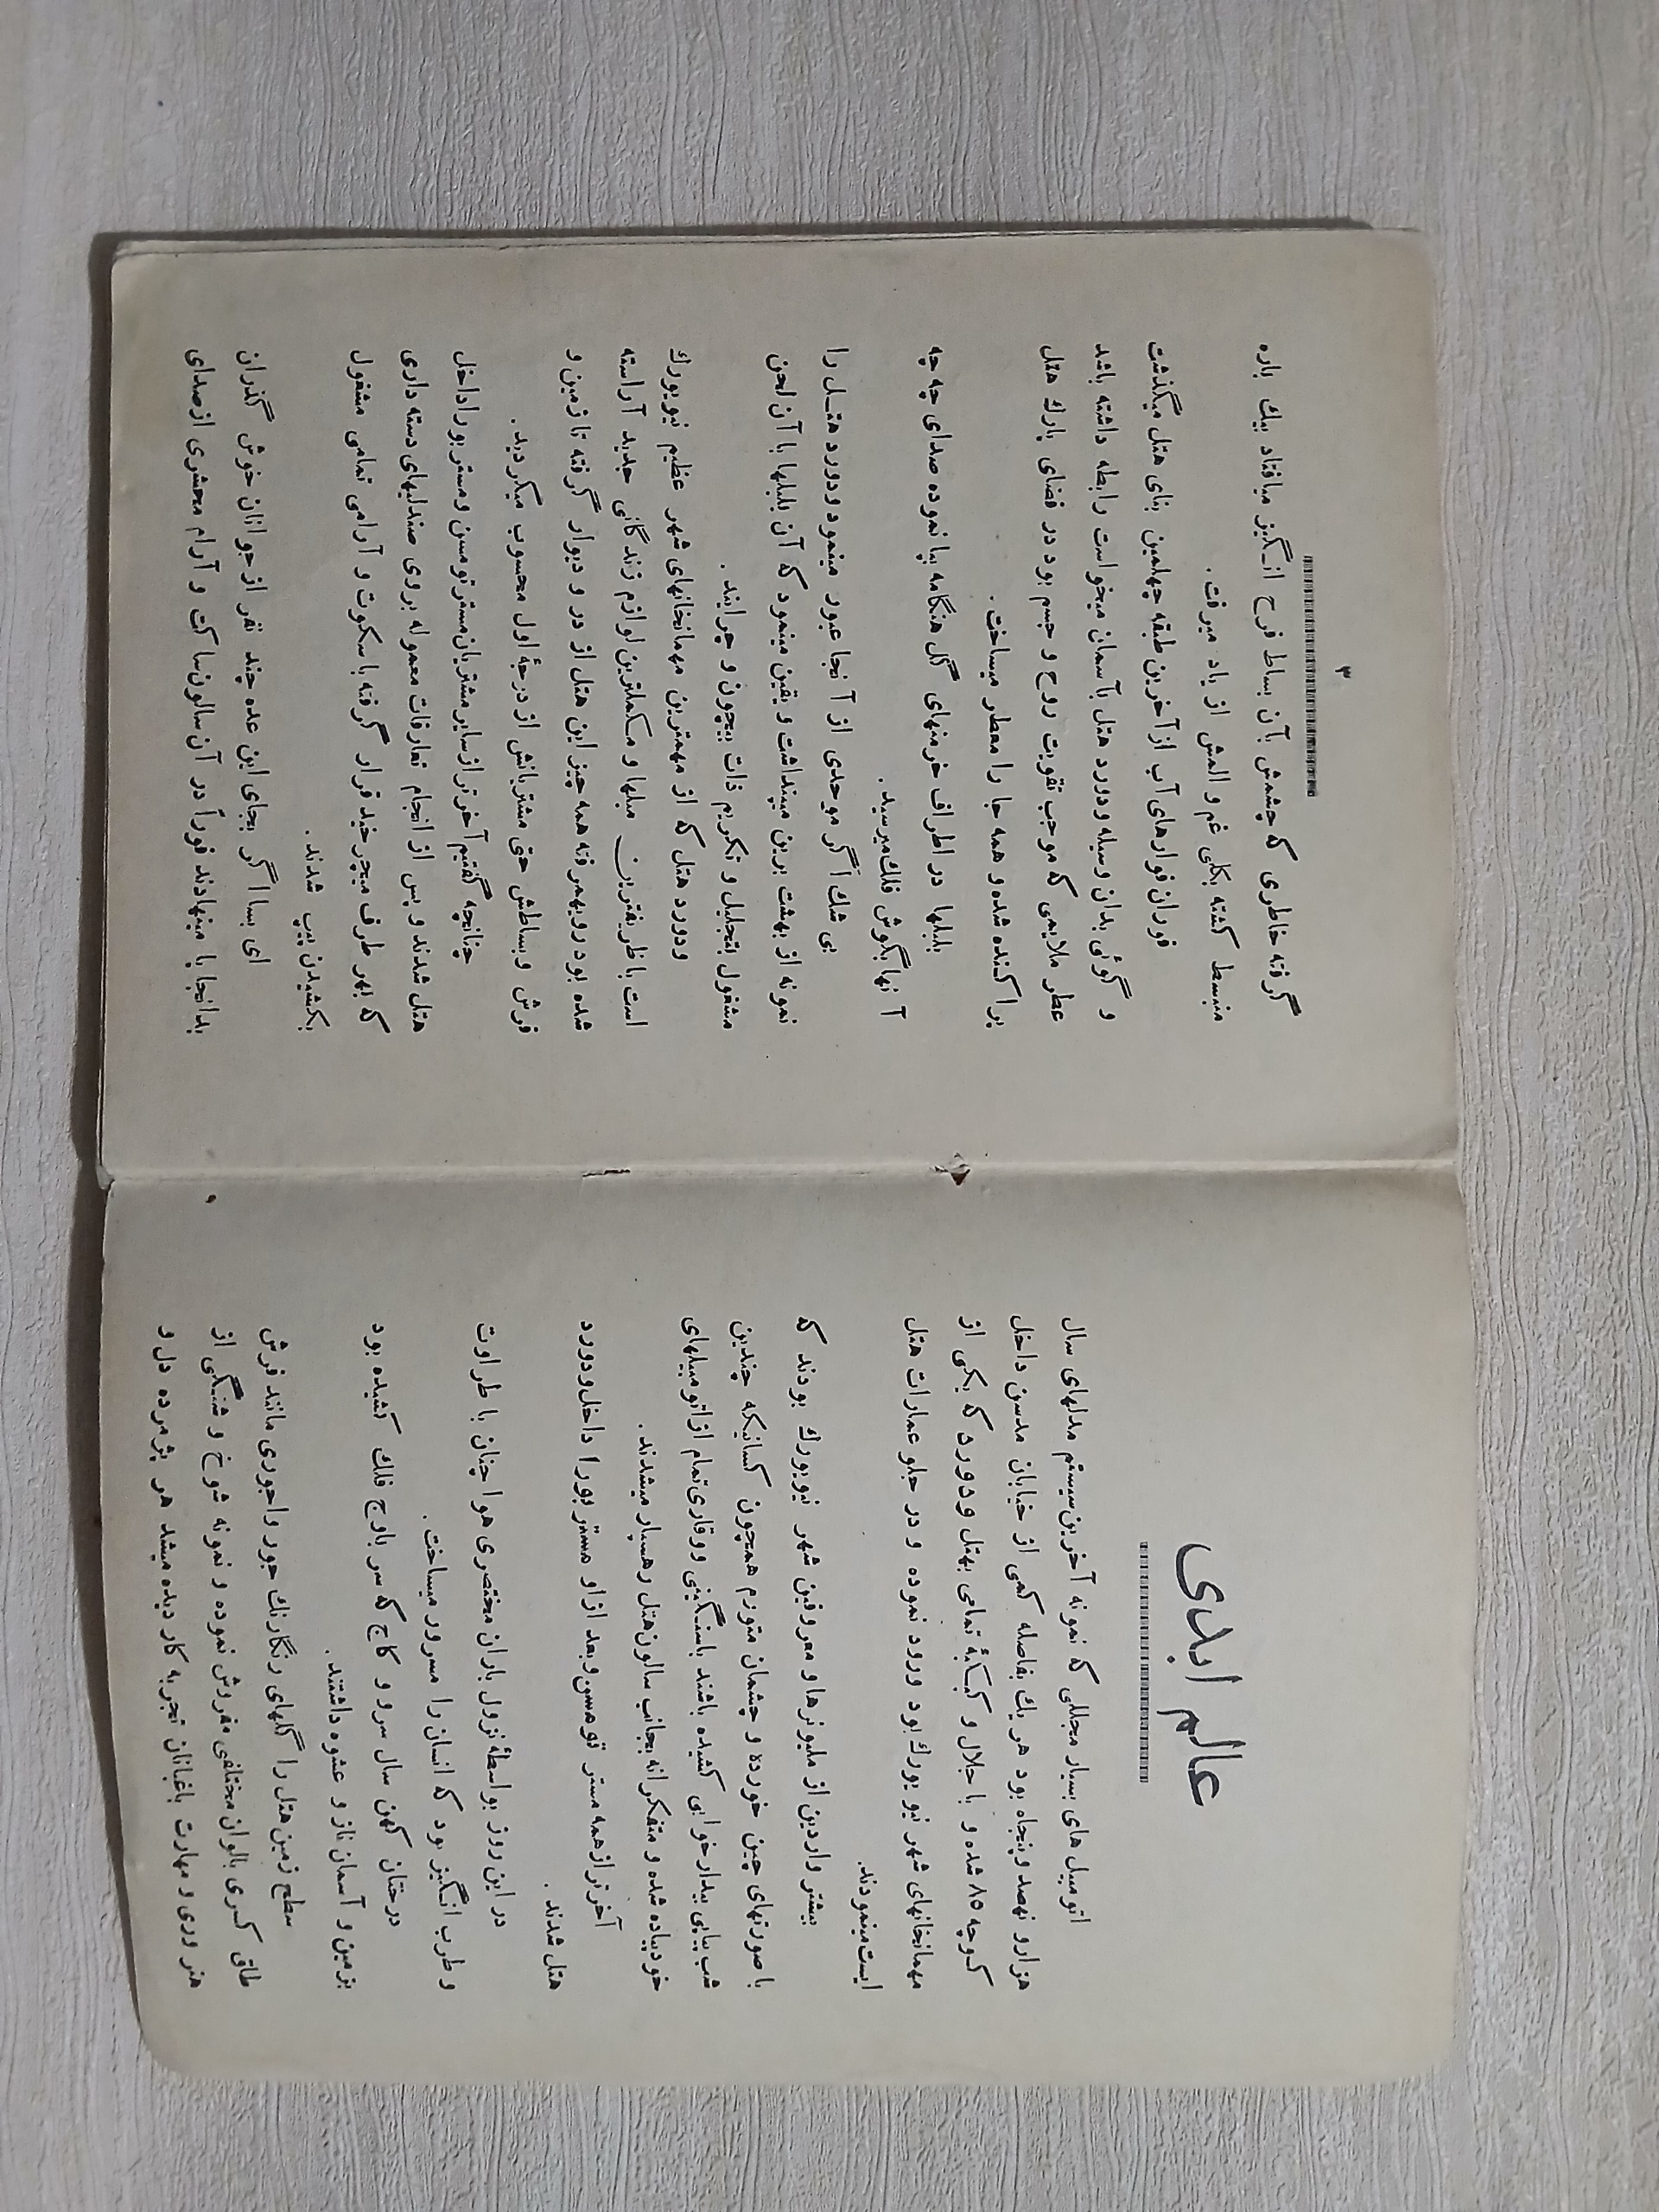 عالم ابدی
اتومبیل های بسیار مجللی که نمونه آخرین سیستم مدلهای سال
هزارو نهصد و پنجاه بود هر یك بفاصله کمی از خیابان مدسن داخل
کوچه ۸۵ شده و با جلال و کبکبهٔ تمامی بهتل ودورد که یکی از
مهمانخانهای شهر نیو یورك بود ورود نموده و در جلو عمارات هتل
ایست مینمودند.
بیشتر واردین از ملیونرها و معروفین شهر نیویورك بودند که
با صورتهای چین خورده و چشمان متورم همچون کسانیکه چندین
شب پیاپی بیدار خوابی کشیده باشند باسنگینی ووقاری تمام از اتومبیلهای
خود پیاده شده و متفکرانه بجانب سالون هتل رهسپار میشدند.
آخرتر از همه مستر تومسن و بعد از او مستر بورا داخل ودورد
هتل شدند.
در این روز بواسطهٔ نزول باران مختصری هوا چنان با طراوت
و طرب انگیز بود که انسان را مسرور میساخت.
درختان کهن سال سرو و کاج که سر باوج فلك کشیده بود
بزمین و آسمان ناز و عشوه داشتند.
سطح زمین هتل را گلهای رنگارنك جور واجوری مانند فرش
طاق کسری بالوان مختلفی مفروش نموده و نمونه شوخ و شنگی از
هنر وری و مهارت باغبانان تجربه کار دیده میشد هر پژمرده دل و
۳
گرفته خاطری که چشمش بآن بساط فرح انگیز میافتاد بیك باره
منبسط گشته بکلی غم و المش از یاد میرفت.
فوران فوارهای آب از آخرین طبقه چهلمین بنای هتل میگذشت
و گوئی بدان وسیله ودورد هتل بآسمان میخواست رابطه داشته باشد
عطر ملایمی که موجب تقویت روح و جسم بود در فضای پارك هتل
پراکنده شده و همه جا را معطر میساخت.
بلبلها در اطراف خرمنهای گل هنگامه بپا نموده صدای چه چه
آنها بگوش فلك میرسید.
بی شك اگر موحدی از آنجا عبور مینمود ودورد هتـل را
نمونه از بهشت برین میپنداشت و یقین مینمود که آن بلبلها با آن لحن
مشغول بتجلیل و تکریم ذات بیچون و چرایند.
ودورد هتل که از مهمترین مهمانخانهای شهر عظیم نیویورك
است با ظریفترین مبلها و مکملترین لوازم زندگانی جدید آراسته
شده بود رویهمرفته همه چیز این هتل از در و دیوار گرفته تا زمین و
فرش و بساطش حتی مشتریانش از درجهٔ اول محسوب میگردید.
چنانچه گفتیم آخرتر از سایر مشتریان مستر تومسن و مستر بورا داخل
هتل شدند و پس از انجام تعارفات معموله بروی صندلیهای دسته داری
که بهر طرف میچرخید قرار گرفته باسکوت و آرامی تمامی مشغول
بکشیدن پیپ شدند.
ای بسا اگر بجای این عده چند نفر از جوانان خوش گذران
بدانجا پا مینهادند فوراً در آن سالون ساکت و آرام محشری از صدای